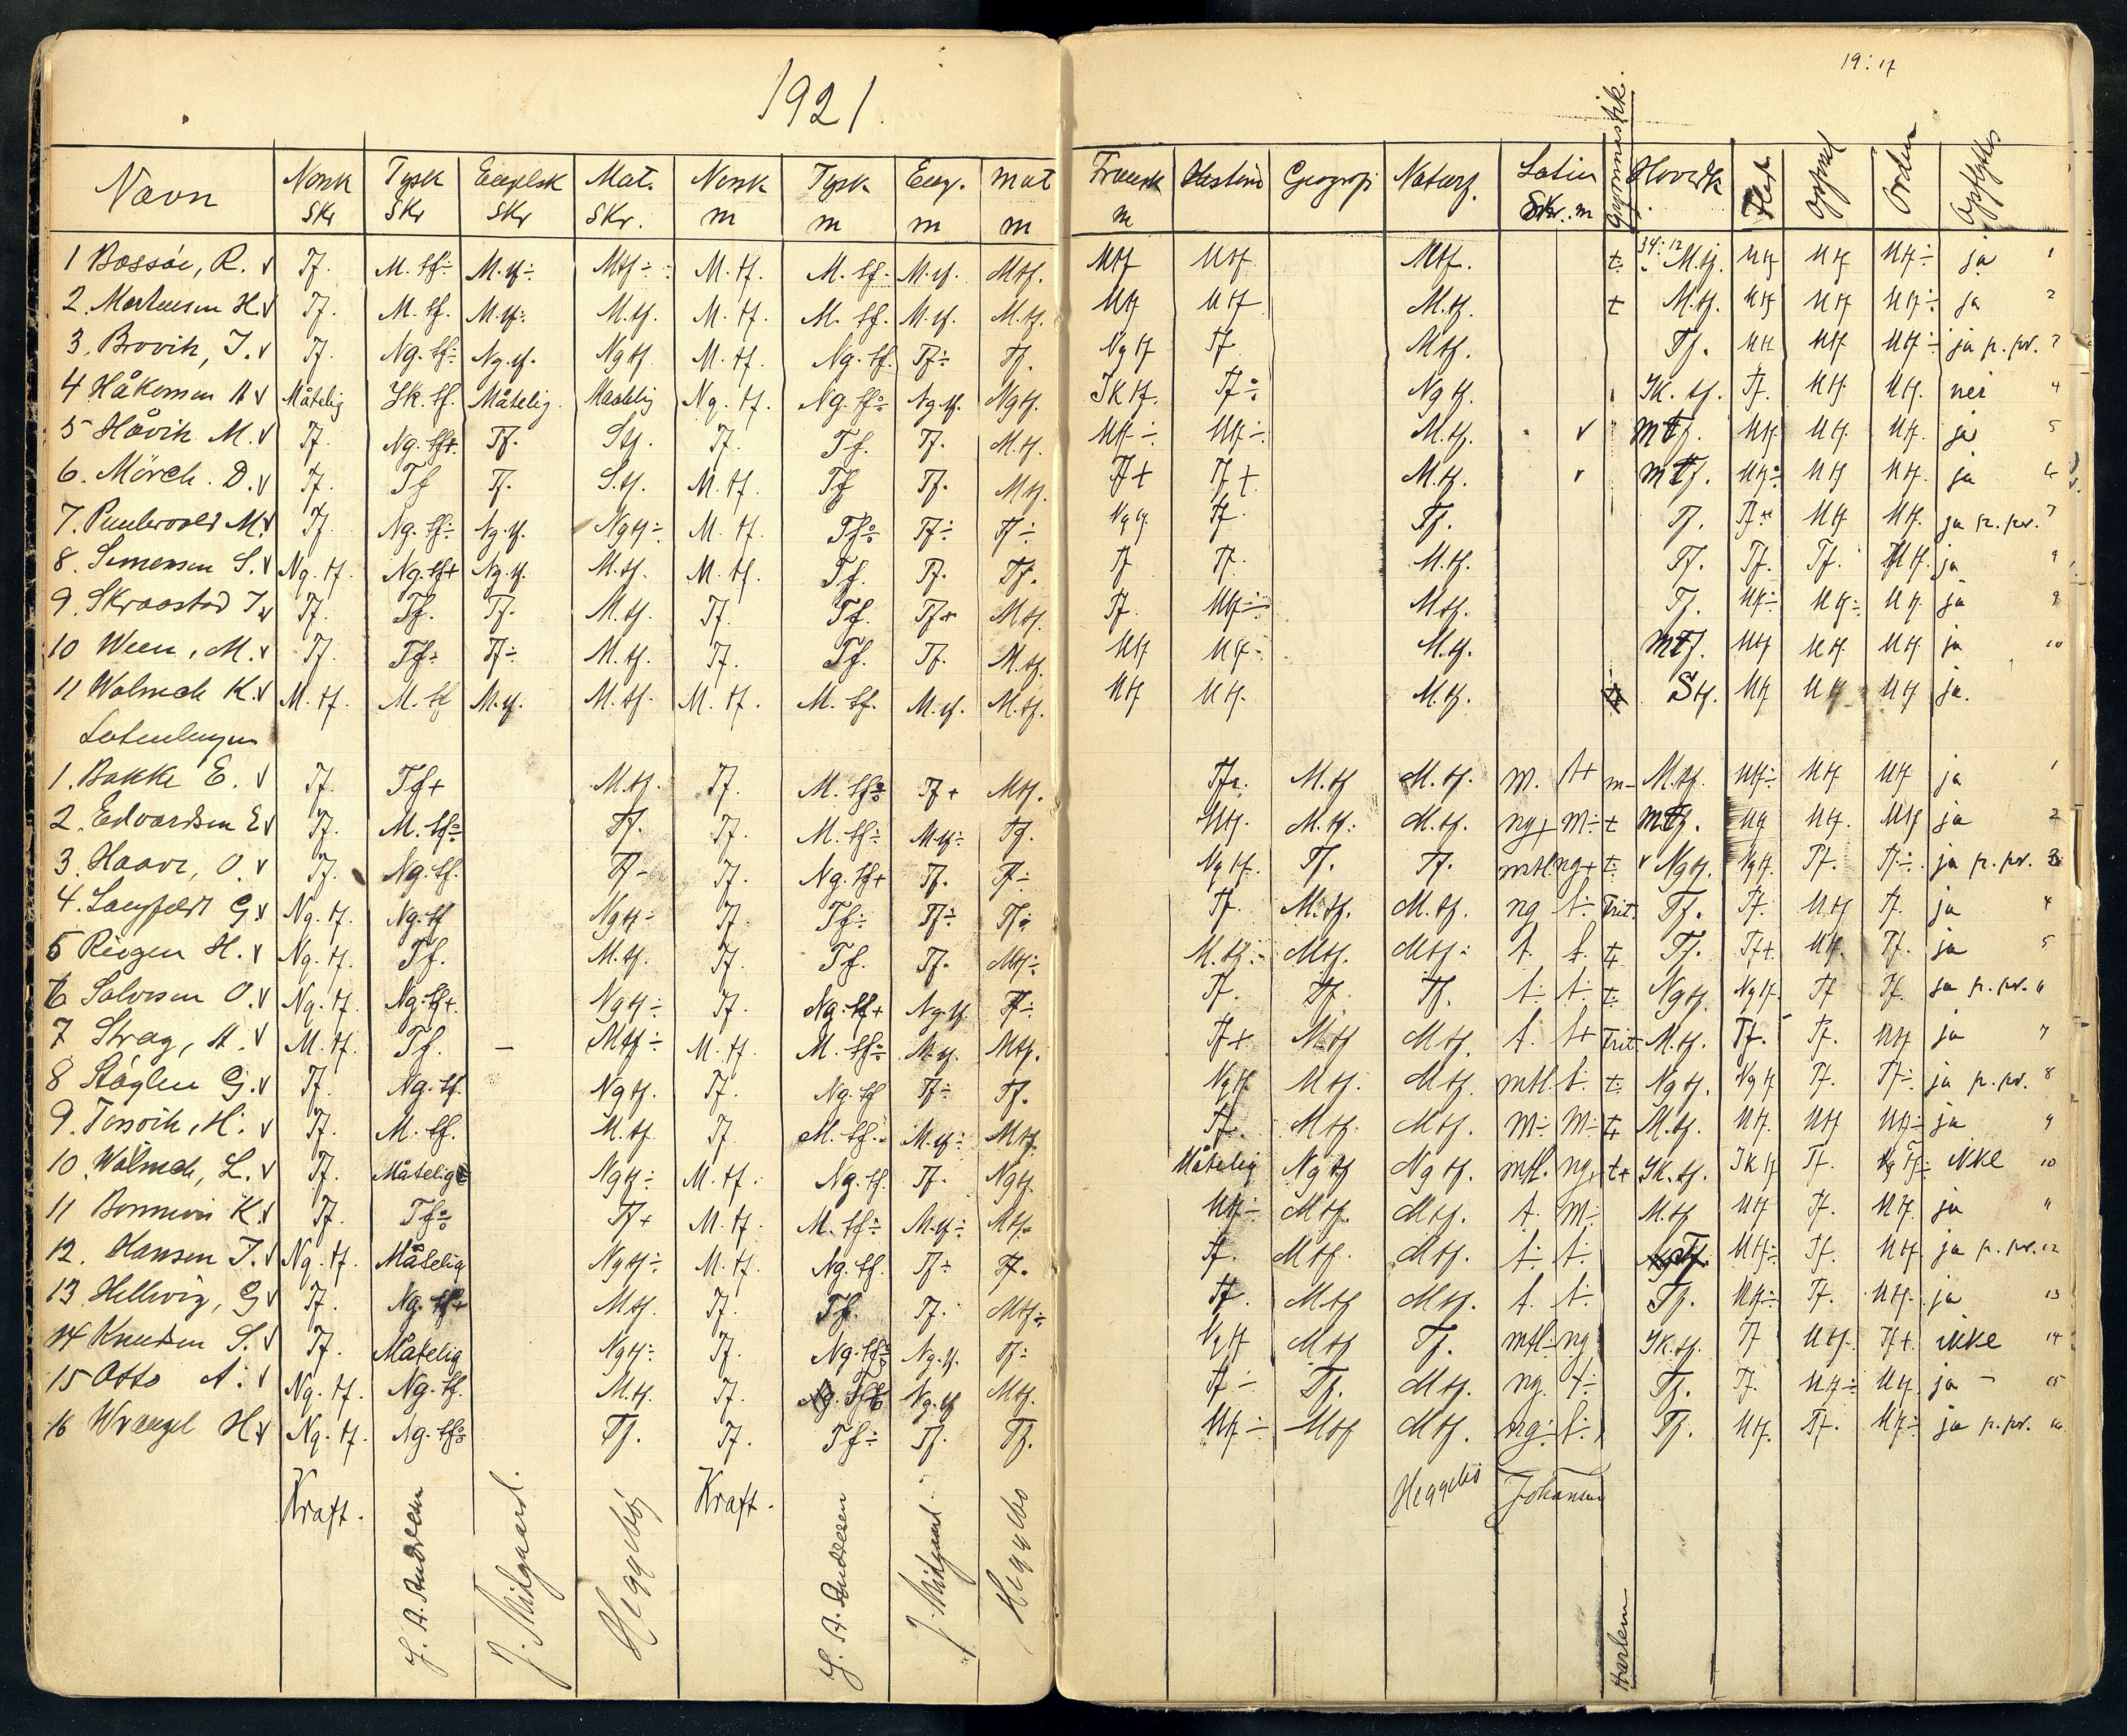 1921.
19:17
Navn Norsk Skr Tysk Skr Engelsk Skr Mat. Skr. Norsk m Tysk m Eng. m mat m Fransk m Historie Geografi Naturf. Latin Skr. m Gymnastik. Hovedk. Flid Opførsel Orden Opflyttes
1 Bossøe, R. v Tf. M.tf÷ M.tf÷ Mtf÷ M.tf. M.tf. M.tf. Mtf. Mtf Mtf Mtf. t. 34:12 M.tf. Mtf Mtf Mtf÷ ja 1
2. Mortensen H. v Tf. M.tf. M.tf÷ M.tf. M.tf. M.tf. M.tf. M.tf. Mtf Mtf M.tf. t M.tf. Mtf Mtf Mtf÷ ja 2
3. Brovik, J. v Tf. Ng.tf÷ Ng.tf. Ngtf M.tf. Ng.tf. Tf÷ Tf. Ng tf Tf Mtf. Tf. Mtf Mtf Mtf÷ ja p.pr. 3
4 Håkonsen M v Måtelig Ik.tf. Måtelig. Maatelig Ng.tf. Ng.tf÷ Ng.tf. Ngtf. Ik tf. Tf÷ Ng tf. Ik.tf. Tf. Mtf Mtf. nei 4
5 Håvik M. v Tf. Ng.tf+. Tf. Stf. Tf. Tf. Tf. M.tf. Mtf÷ Mtf÷ M.tf. v mtf. Mtf. Mtf. Mtf. ja 5
6. Mörch. D. v Tf. Tf Tf. S.tf. M.tf. Tf Tf. Mtf. Tf+ Tf+ M.tf. v mtf. Mtf÷ Mtf Mtf. ja 6
7. M. v Tf. Ng.tf÷ Ng.tf. Ngtf÷ M.tf. Tf÷ Tf÷ Tf÷ Ng tf Tf. Tf. Tf. Tf Mtf Mtf. ja p.pr. 7
8. Simensen S. v Ng.tf. Ng.tf+ Ng.tf. M.tf. M.tf. Tf. Tf. Tf. Tf Tf. M.tf. Tf. Tf. Tf. Mtf. ja
9. Skraastad J. v Tf. Tf. Tf. M.tf. Tf. Tf. Tf+ Mtf. Tf. Mtf÷ Mtf. Tf. Mtf÷ Mtf÷ Mtf. ja 9
10 Ween, M. v Tf. Tf÷ Tf÷ M.tf. Tf. Tf. Tf. M.tf. Mtf Mtf÷ M.tf. mtf. Mtf Mtf. Mtf. ja 10
11 Wolmack K. v M.tf. M.tf M.tf. M.tf. M.tf. M.tf. M.tf. M.tf. Mtf Mtf. M.tf. Stf. Mtf Mtf Mtf ja.
Latinlinjen
1. Bakke E. v Tf. Tf+ M.tf. Tf. M.tf÷ Tf+ Mtf. M.tf M.tf. m. t+ m- M.tf. Mtf÷ Mtf Mtf ja 1
2. Edvardsen E v Tf. M.tf÷ Tf. Tf. M.tf÷ M.tf÷ Tf. Mtf. M.tf. M.tf. ng+ M÷ t mtf. Mtf Mtf. Mtf ja 2
3. Haave, O. v Tf. Ng.tf. Tf÷ Tf. Ng.tf+ Tf. Tf÷ Ng tf. Tf. Tf. mtl. ng+ t. v Ngtf. Ngtf. Tf. Tf÷ ja p.pr. 3
4. Langfeldt G. v Ng.tf. Ng.tf Ngtf÷ Tf. Tf÷ Tf÷ Tf÷ Tf. M.tf. M.tf. ng t÷ Frit. Tf. Tf. Mtf Tf. ja 4
5 Ringen H. v Ng.tf. Tf. M.tf. Tf. Tf. Tf. Mtf÷ M.tf÷ Mtf. Mtf÷ t. t. t Tf. Tf+. Mtf. Tf. ja 5
6 Salvesen O. v Ng.tf. Ng.tf+. Ngtf÷ Tf. Ng.tf+ Ng.tf. Tf÷ Tf. Tf Tf. t÷ t÷ t. Ngtf. Ngtf. Tf Tf. ja p.pr. 6
7 Stray, M. v M.tf. Tf. – Mtf÷ M.tf. M.tf÷ M.tf. Mtf. Tf+ Mtf Mtf. t. t+ Frit M.tf. Tf. Tf. Mtf ja 7
8 Stöylen G. v Tf. Ng.tf. Ngtf. Tf. Ng.tf Tf÷ Tf. Ngtf Mtf. Mtf. mtl. t÷ t. Ngtf. Ngtf. Tf. Tf÷ ja p.pr. 8
9. Torsvik, H. v Tf. M.tf. M.tf Tf. M.tf. M.tf÷ Mtf Tf. Mtf. Mtf. M÷ M÷ t+ M.tf. Mtf. Mtf Mtf÷ ja 9
10. Wölmack, L. v Tf. Måtelig Ngtf÷ M.tf. Ng.tf. Tf. Ngtf. Måtelig Ngtf Ngtf. mtl. ng. t+ Ik.tf. Iktf Tf. Tf÷ ikke 10
11 Bonnevie K. v Tf. Tf÷ Tf+ M.tf. M.tf÷ M.tf÷ Mtf. Mtf÷ Mtf. Mtf. t. M÷ M.tf Mtf Tf. Mtf. ja 11
12. Hansen J. v Ng.tf. Måtelig Ngtf÷ M.tf. Ng.tf. Tf÷ Tf. Tf. Mtf. Mtf. t÷ t÷ Tf. Mtf÷ Tf. Mtf. ja p.pr. 12
13. Hellwig, G v Tf. Ng.tf+ Mtf. Tf. Tf. Tf. Mtf÷ Tf. Mtf Mtf. t. t÷ Tf. Mtf÷ Tf. Mtf. ja 13
14 Knudsen S. v Tf. Måtelig Ngtf÷ Tf. Ng.tf÷ Ng.tf. Tf÷ Ngtf Mtf Tf. mtl. ng Ik.tf. Tf Mtf. Tf+. ikke 14
15 Otto A. v Ng.tf. Ng.tf. M.tf. Tf. Ng.tf Mtf. Tf÷ Tf. Mtf. ng. t÷ Tf. Tf. Mtf÷ Mtf. ja – 15
16 Wrangel H. v Ng.tf. Ng.tf÷ Tf. Tf. Tf÷ Tf. Tf. Mtf÷ Mtf Mtf. ng÷ t÷ Tf. Mtf. Tf. Mtf÷ ja p.pr. 16
Kraft. J. A. Andresen J. Midgaard. Heggebö Kraft. J. A. Andresen J. Midgaard. Heggebo Heggebö Johansen Harlem